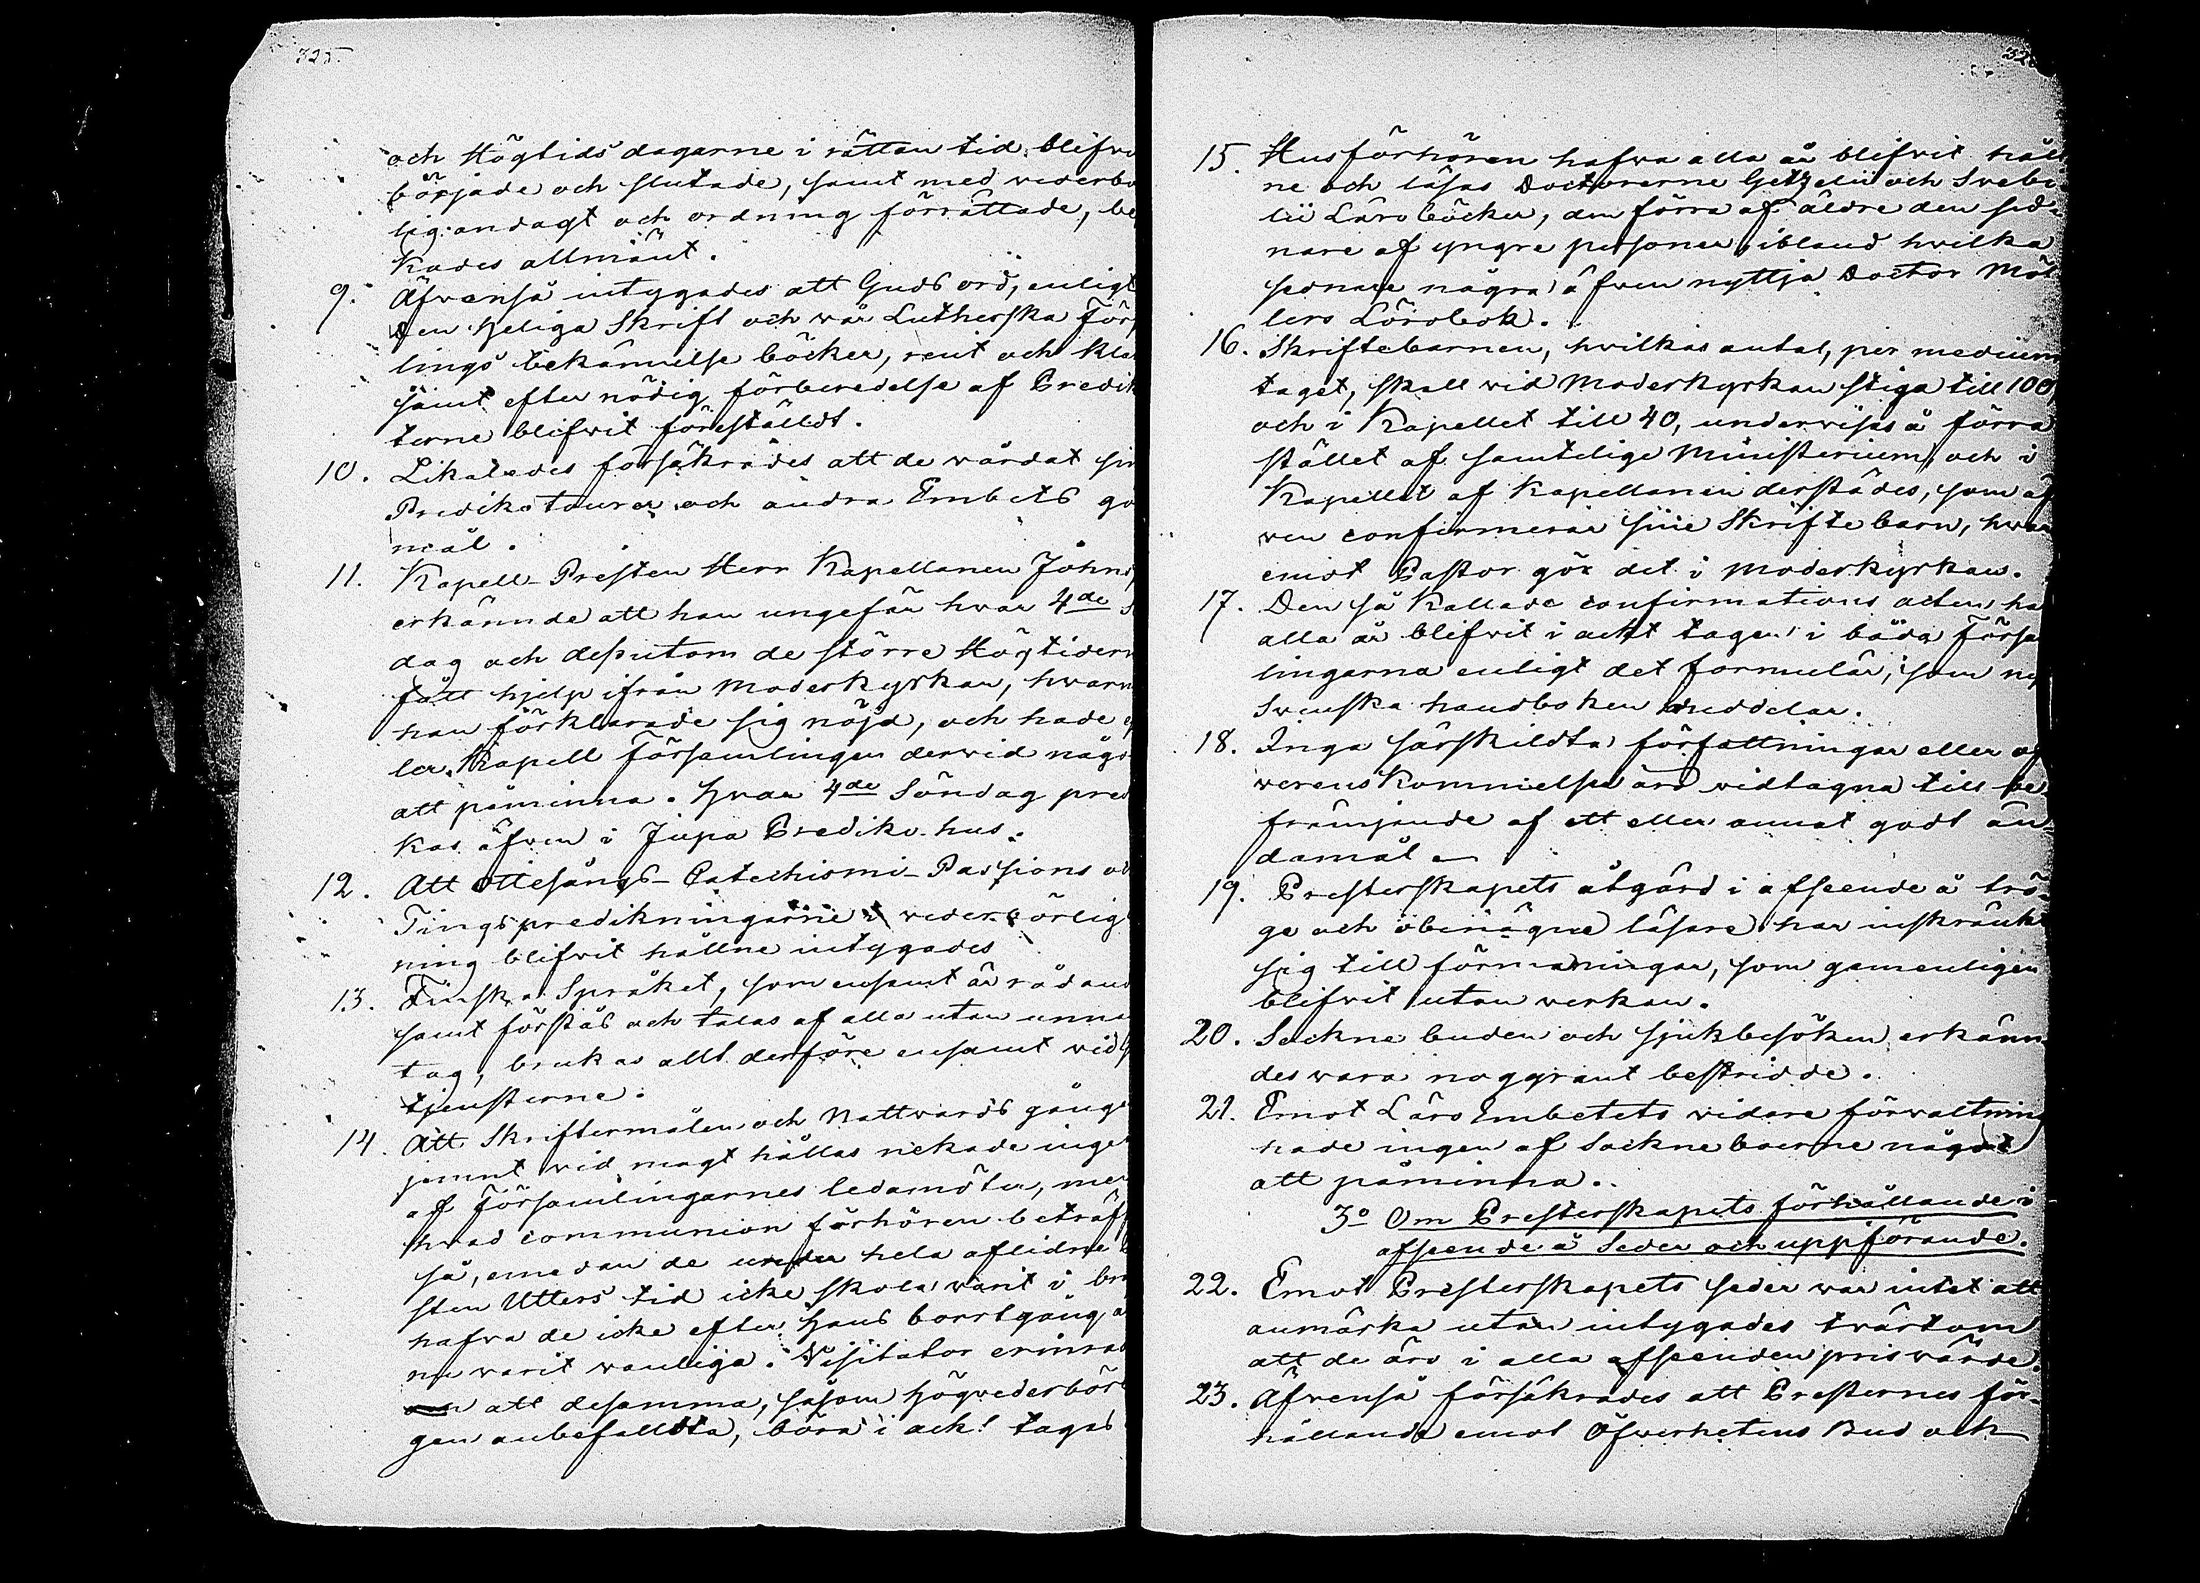 325.
och Högtids dagarne i rättan tid blifvi
började och slutade, samt med vederbö
lig andagt och ordning förrättade, be
kades allmänt.
9. Äfvenså intygades att Guds ord, enligt
Den heliga Skrift och vår Lutherska Förs
lings bekännelse böcker, rent och kla
samt efter nödig förberedelse af Predik
terne blifvit föreställdt.
10. Likaledes försäkrades att de vårdat sin
Predikoturer och andra Embets gö
mål.
11. Kapell-Presten Herr Kapellanen Johns
erkännde att han ungefär hvar 4de S
dag och desutom de större Högtidern
fått hjelp ifrån Moderkyrkan, hvarm
han förklarade sig nöjd, och hade e
ler Kapell Församlingen dervid någo
att påminna. Hvar 4de Söndag pred
kas äfven i Jupa Prediko-hus.
12. Att ottesångs- Catechismi- Passions oc
Tings predikningarne i vederbörlig
ning blifvit hållne intygades
13. Finska Språket, som ensamt är rådand
samt förstås och talas af alla utan unna
tag, brukas allt derföre ensamt vid G
tjensterne.
14. Att Skriftermålen och Nattvards gånge
jemnt vid magt hållas nekade inge
af Församlingarnes ledamöter, men
hvad communion förhören beträff
så, emedan de under hela aflidne
sten Utters tid icke skola varit i bru
hafva de icke efter Hans bortgång a
nu varit vanliga. Visitator erinrad
att desamma, såsom Högvederbörl
gen anbefallta, böra i akt tagas
15. Husförhören hafva alla år blifvit håll
ne och läsas Doctorerne Getzelii och Svebi
lii Läroböcker, den förra af äldre den sed-
nare af yngre personer, ibland hvilka
sednare några äfven nyttja Doctor Möl
lers Lärobok.
16. Skriftebarnen, hvilkas antal, per medium
taget, skall vid Moderkyrkan stiga till 100
och i Kapellet till 40, undervisas å förra
stället af samtelige Ministerium, och i
Kapellet af Kapellanen derstädes, som äf
ven confirmerar sine Skriftebarn, hvar
emot Pastor gör det i Moderkyrkan.
17. Den så kallade confirmations acten, ha
alla år blifvit i akt tagen i båda Försa
lingarna enligt det formulär, som ny
Svenska handboken meddelar.
18. Inga särskildta författningar eller öf
verenskommelser äro vidtagna till be
främjande af ett eller annat godt än
damål.
19. Presterskapets åtgärd i afseende å trö
ge och obenägne läsare har inskränkt
sig till förmaningar, som gemenligen
blifvit utan verkan.
20. Sockne buden och sjukbesöken erkänn
des vara noggrant bestridde.
21. Emot Läro Embetets vidare förvaltning
hade ingen af Sockneboerne något
att påminna.
3o Om Presterskapets förhållande i
afseende å Seder och uppförande.
22. Emot Presterskapets seder var intet att
anmärka utan intygades tvärtom
att de äro i alla afseenden prisvärde.
23. Äfvenså försäkrades att Presternes för-
hållande emot Öfverhetens Bud och